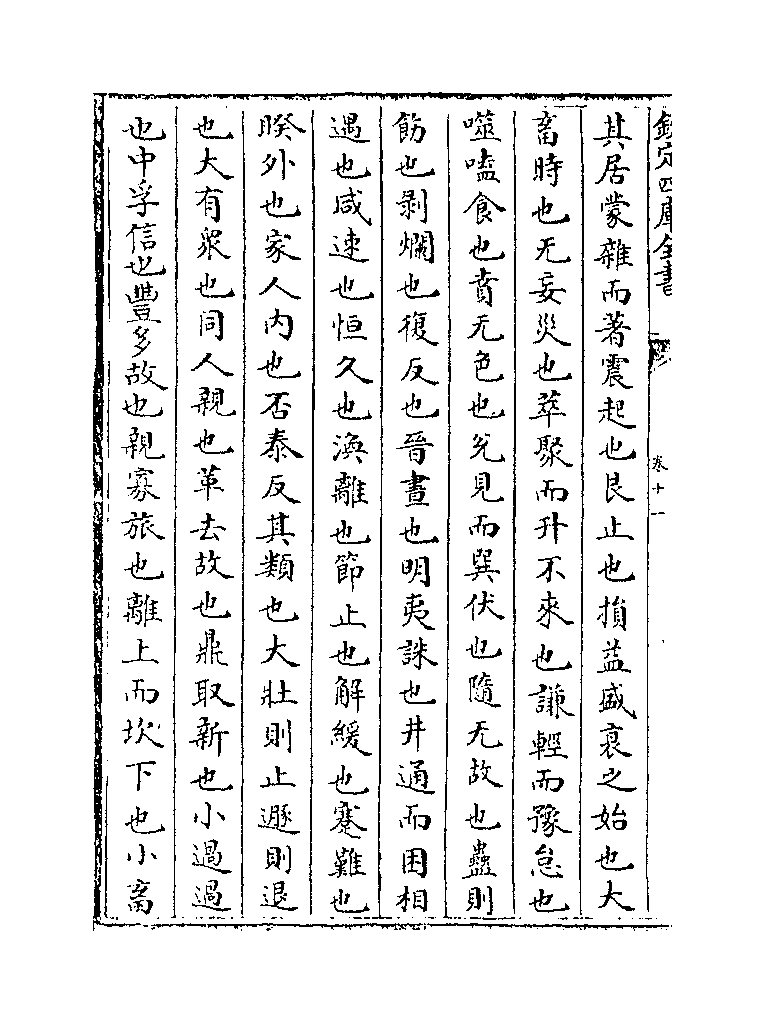 欽定四庫全書
卷十一
其居蒙雜而著震起也艮止也損益盛衰之始也大
畜時也无妄災也萃聚而升不來也謙輕而豫怠也
噬嗑食也賁无色也兊見而巽伏也隨无故也蠱則
飭也剝爛也復反也晉晝也明夷誅也井通而困相
遇也咸速也恒久也渙離也節止也解緩也蹇難也
睽外也家人内也否泰反其類也大壯則止遯則退
也大有衆也同人親也革去故也鼎取新也小過過
也中孚信也豐多故也親寡旅也離上而坎下也小畜